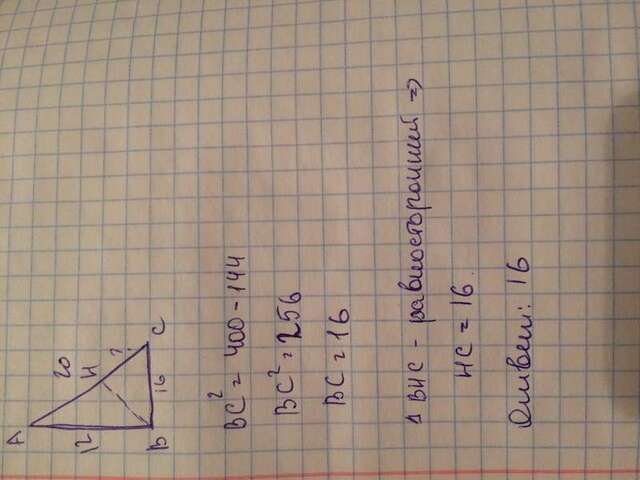 A
20
12
H
?
B
16
C
BC² = 400 - 144
BC² = 256
BC = 16
Δ BHC - равносторонний =>
HC = 16.
Ответ: 16